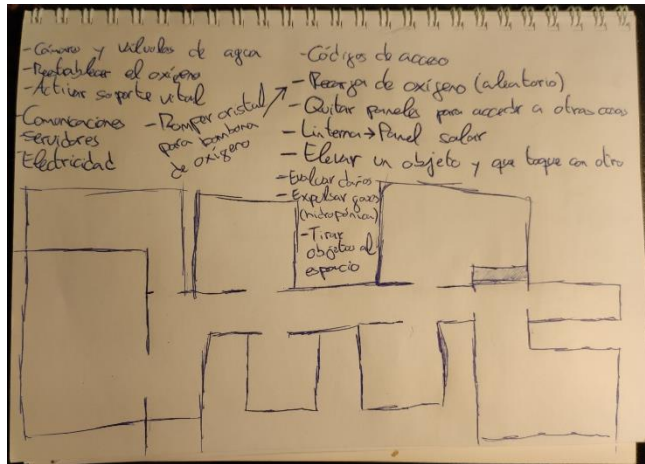 - Cámara y válvulas de agua
- Restablecer el oxígeno
- Activar soporte vital
Comunicaciones
- Servidores
Electricidad
- Romper cristal
para bombona
de oxígeno
- Códigos de acceso
- Recarga de oxígeno (aleatorio)
- Quitar paneles para acceder a otras cosas
- Linterna → Panel solar
- Elevar un objeto y que toque con otro
- Evaluar daños
- Expulsar gases
(hidropónica)
- Tirar
objetos al
espacio